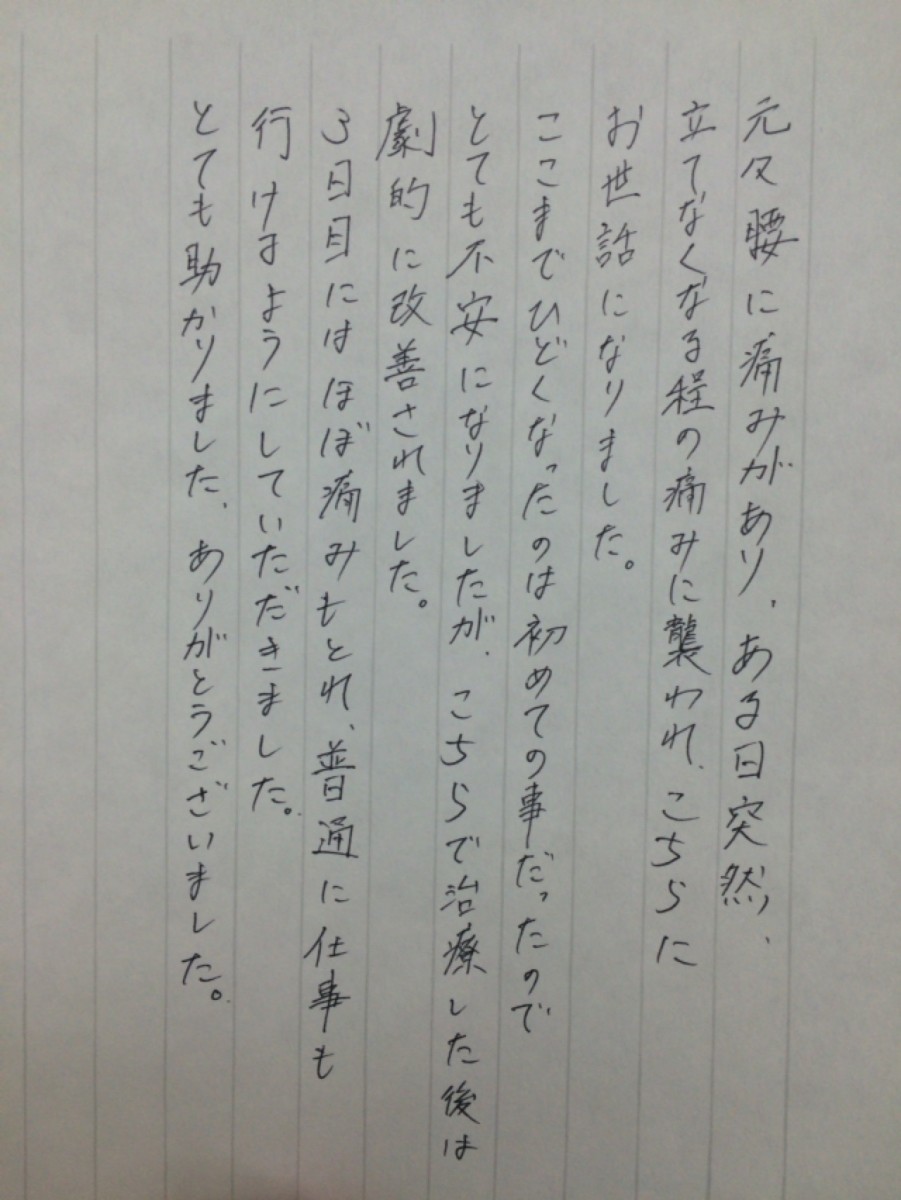 元々腰に痛みがあり、ある日突然、
立てなくなる程の痛みに襲われ、こちらに
お世話になりました。
ここまでひどくなったのは初めての事だったので
とても不安になりましたが、こちらで治療した後は
劇的に改善されました。
3日目にはほぼ痛みもとれ、普通に仕事も
行けるようにしていただきました。
とても助かりました、ありがとうございました。